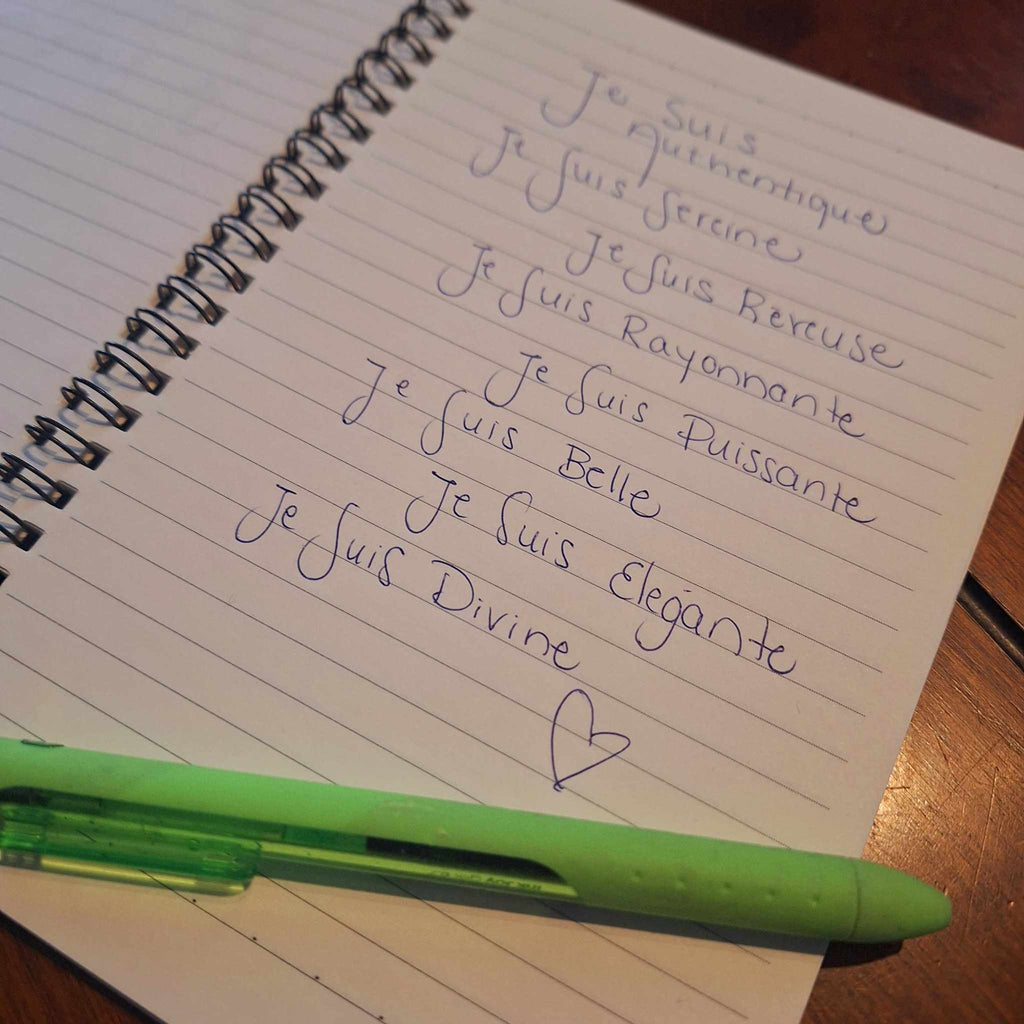 Je Suis
Authentique
Je Suis Sereine
Je Suis Reveuse
Je Suis Rayonnante
Je Suis Puissante
Je Suis Belle
Je Suis Elegante
Je Suis Divine